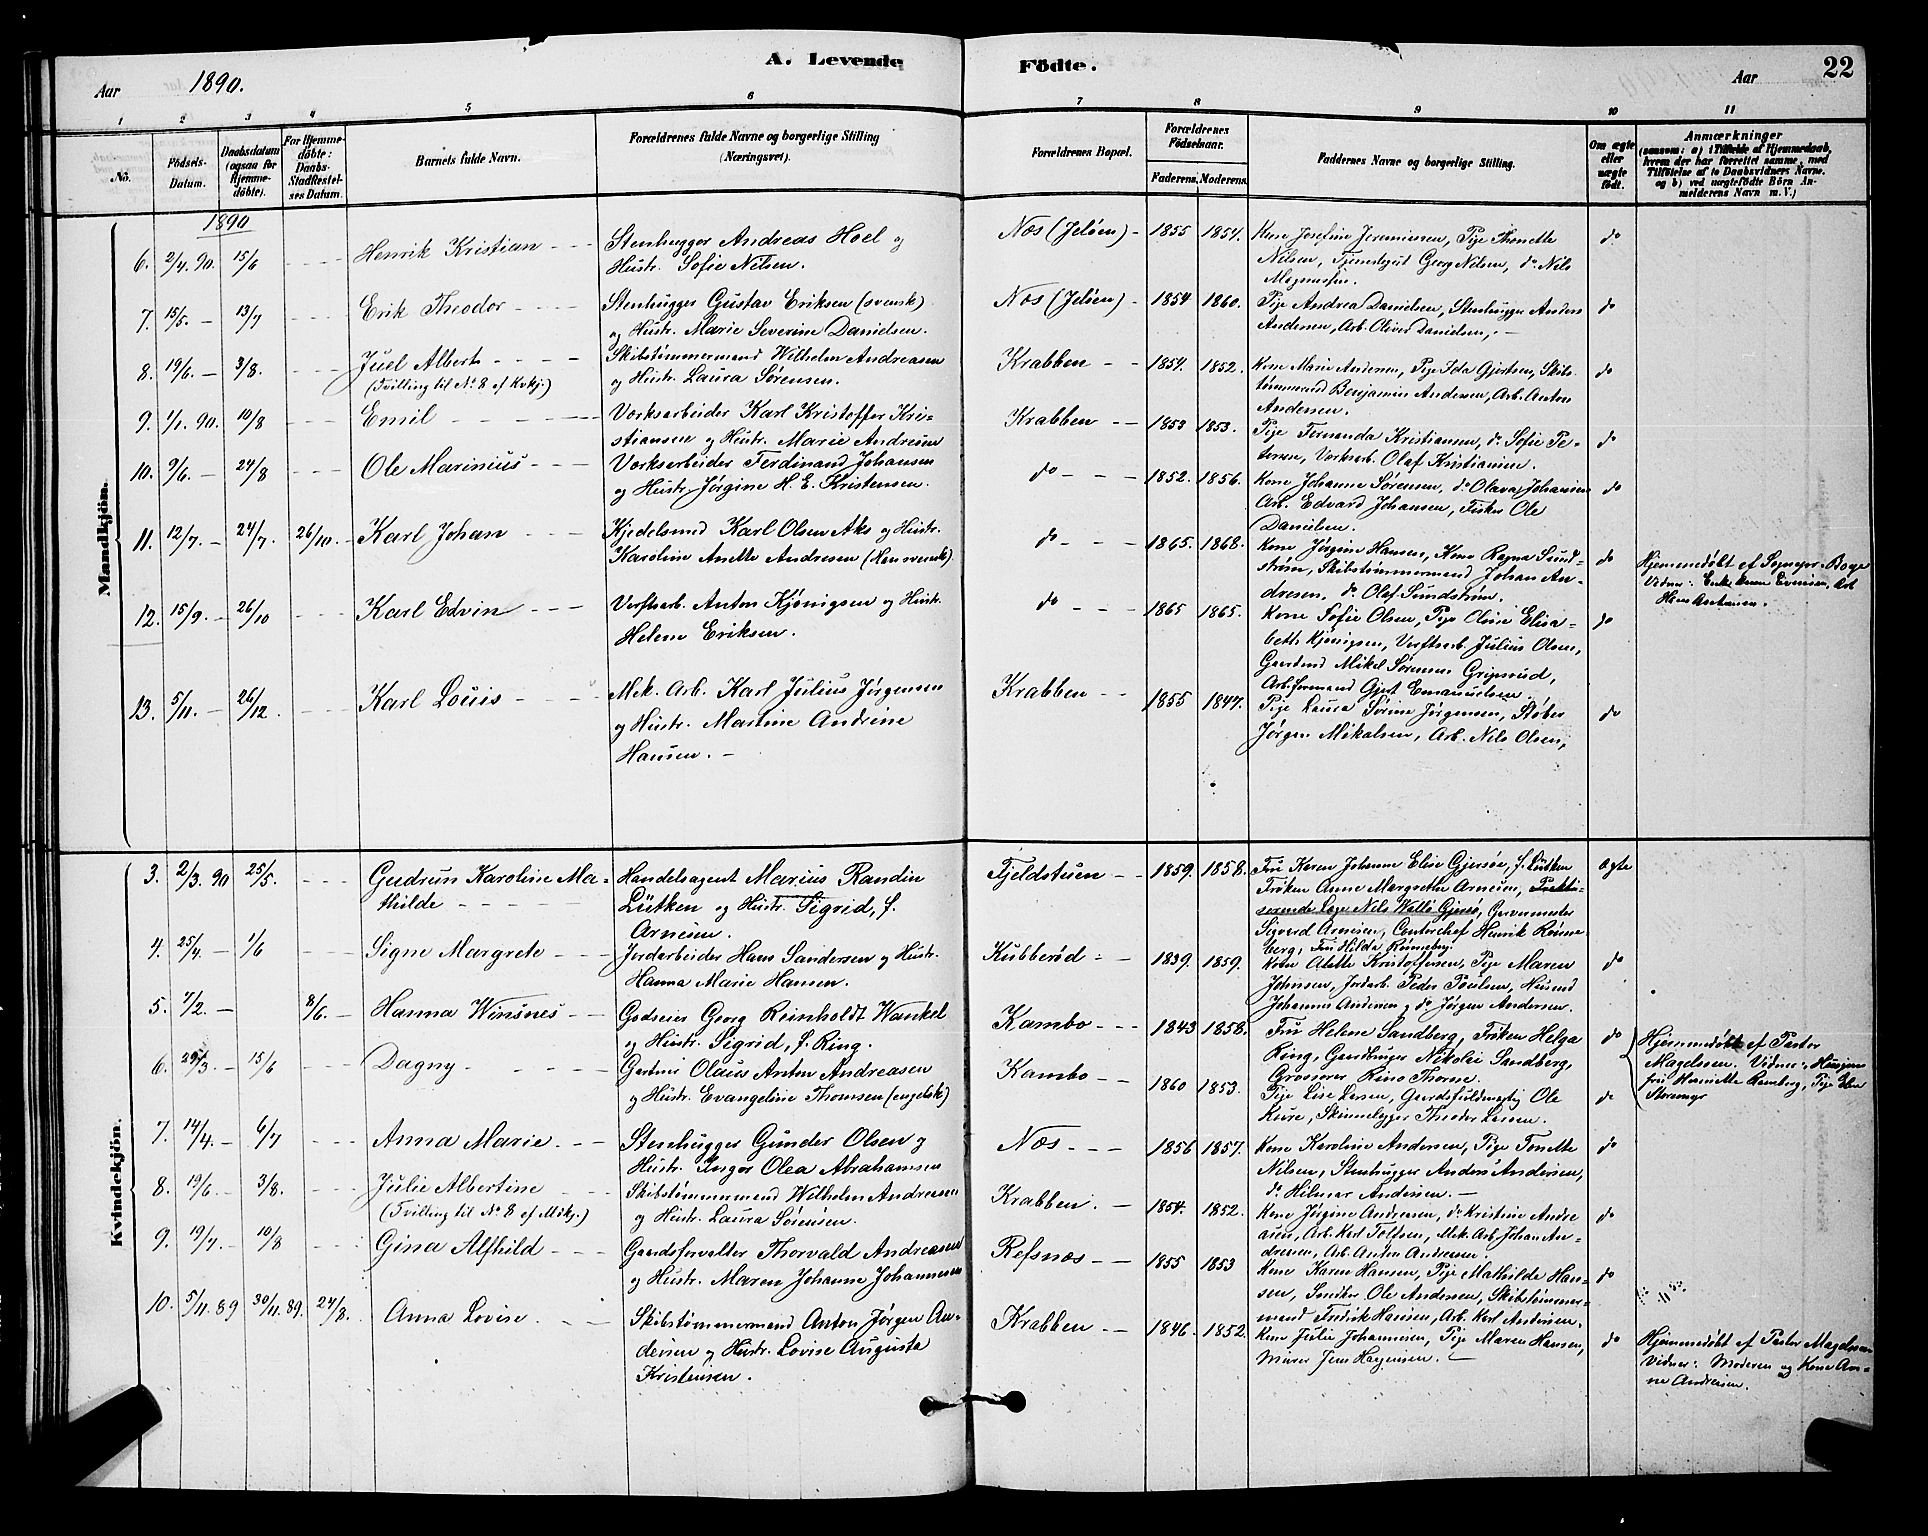 A. Levende Födte.
22
Aar 1890.
Aar
1 2 3 4 5 6 7 8 9 10 11
No.
Födsels-Datum.
Daabsdatum (ogsaa for Hjemme-döbte).
For Hjemme-döbte: Daabs-Stadfæstel-ses Datum.
Barnets fulde Navn.
Forældrenes fulde Navne og borgerlige Stilling (Næringsvei).
Forældrenes Bopæl.
Forældrenes Födselsaar.
Faderens. Moderens.
Faddernes Navne og borgerlige Stilling.
Om ægte eller uægte födt.
Anmærkninger
(saasom: a) i Tilfælde af Hjemmedaab,
hvem der har forrettet samme, med
Tilföielse af to Daabsvidners Navne,
og b) ved uægtefödte Börn An-
melderens Navn m. V.)
Mandkjön.
1890
6. 2/4. 90. 15/6 Henrik Kristian
Stenhugger Andreas Hoel og
Hustr. Sofie Nilsen.
Næs (Jeløen) 1855 1854.
Kone Josefine Jeremiassen, Pige Thonette
Nilsen, Tjenestegut Georg Nilsen, do Nils
Magnussen.
do
7. 15/5. 13/7 Erik Theodor
Stenhugger Gustav Eriksen (svensk)
og Hustr. Marie Severine Danielsen.
Næs (Jeløen) 1854 1860.
Pige Andrea Danielsen, Stenhugger Anders
Andersen, Arb. Oliver Danielsen,
do
8. 19/6. 3/8. Juel Albert
(Tvilling til No 8 af Kvkj.)
Skibstømmermand Wilhelm Andreasen
og Hustr. Laura Sørensen.
Krabben 1854. 1852.
Kone Marie Andersen, Pige Ida Gjertsen, Skibs-
tømmermand Benjamin Andersen, Arb. Anton
Andersen.
do
9. 1/1. 90. 10/8 Emil
Værksarbeider Karl Kristoffer Kri-
stiansen og Hustr. Marie Andresen
Krabben 1853 1853.
Pige Fernanda Kristiansen, do Sofie Pe-
tersen, Værksarb. Olaf Kristiansen.
do
10. 9/6. 24/8 Ole Marinius
Værksarbeider Ferdinand Johansen
og Hustr. Jørgine H. E. Kristensen.
do 1852. 1856.
Kone Johanne Sørensen, do Olava Johansen
Arb. Edvard Johansen, Fisker Ole
Danielsen.
do
11. 12/7. 24/7. 26/10. Karl Johan
Kjedelsmed Karl Olsen Aks og Hustr.
Karoline Anette Andresen (Han svensk).
do 1865. 1868.
Kone Jørgine Hansen, Kone Ragna Sund-
strøm, Skibstømmermand Johan An-
dresen, do Olaf Sundstrøm.
do
Hjemmedøbt af Sognepr. Boye
Vidner: Enke Evensen, Arb.
Hans
12. 15/9. 26/10 Karl Edvin
Verftsarb. Anton Kjønigsen og Hustr.
Helene Eriksen.
do 1865 1865.
Kone Sofie Olsen, Pige Oline Elisa-
beth Kjønigsen, Verftsarb. Julius Olsen,
Gaardmd Mikel Sørensen Gripsrud,
Arb.formand Gjert Emanuelsen.
do
13. 5/11. 26/12. Karl Louis
Mek. Arb. Karl Julius Jørgensen
og Hustr. Martine Andrine
Hansen.
Krabben 1855 1847.
Pige Laura Sørine Jørgensen, Støber
Jørgen Mikalsen, Arb. Nils Olsen,
do
Kvindekjön.
3. 2/3. 90 25/5. Gudrun Karoline Ma-
thilde
Handelsagent Marius Randin
Lütken og Hustr. Sigrid, f.
Arnesen.
Fjeldstuen 1859. 1858.
Fru Karen Johanne Elise Gjersøe, f. Lütken
Frøken Anne Margrethe Arnesen, Prakti-
serende Læge Nils Gjersø,
Sigverd Arnesen, Contorchef Henrik Rønne-
berg, Fru Hilda Rønneberg.
Ægte
4. 25/4. 1/6 Signe Margrete
Jordarbeider Hans Sandersen og Hustr.
Hanna Marie Hansen.
Kubberød 1839. 1859.
Kone Alette Kristoffersen, Pige Maren
Johnsen, Jordarb. Peder Poulsen, Husmd
Johannes Andersen og do Jørgen Andersen.
do
5. 7/2. 8/6. Hanna Winsnes
Godseier Georg Reinholdt Wankel
og Hustr. Sigrid, f. Ring.
Kambo 1843 1858.
Fru Helene Sandberg, Frøken Helga
Ring, Gaardbruger Nikolai Sandberg,
Grosserer Rino Thorne.
do
Hjemmedøbt af Pastor
Magelssen. Vidner: Husjom-
fru Hermette Ramberg, Pige Elen
Storemyr
6. 29/3. 15/6 Dagny
Gartner Olaus Anton Andreasen
og Hustr. Evangeline Thomsen (engelsk)
Kambo 1860 1853.
Pige Lise Larsen, Gaardsfuldmægtig Ole
Kure, Skindlegger Theodor Larsen.
do
7. 14/4. 6/7 Anna Marie
Stenhugger Gunder Olsen og
Hustr. Inger Olea Abrahamsen
Næs 1856 1857.
Kone Karoline Andersen, Pige Tonette
Nilsen, Stenhugger Anders Andersen,
do Hilmar Andersen.
do
8. 19/6. 3/8. Julie Albertine
(Tvilling til No 8 af Mskj.)
Skibstømmermand Wilhelm Andreasen
og Hustr. Laura Sørensen.
Krabben. 1854. 1852.
Kone Jørgine Andreasen, do Kristine Andre-
asen, Arb. Karl Tolfsen, Mek. Arb. Johan An-
dresen, Arb. Anton Andreasen.
do
9. 19/7. 10/8 Gina Alfhild
Gaardsforvalter Thorvald Andreasen
og Hustr. Maren Johanne Johannesen
Refsnæs 1855 1853
Kone Karen Hansen, Pige Mathilde Han-
sen, Snedker Ole Andersen, Skibstømmer-
mand Fredrik Hansen, Arb. Karl Andersen.
do
10. 5/11. 89 30/11. 89. 24/8. Anna Lovise
Skibstømmermand Anton Jørgen An-
dersen og Hustr. Lovise Augusta
Kristensen.
Krabben 1846. 1852.
Kone Julie Johannesen, Pige Maren Hansen,
Murer Jens Hagensen.
do
Hjemmedøbt af Pastor Magelssen
Vidner: Moderen og Kone An-
ne Andresen.